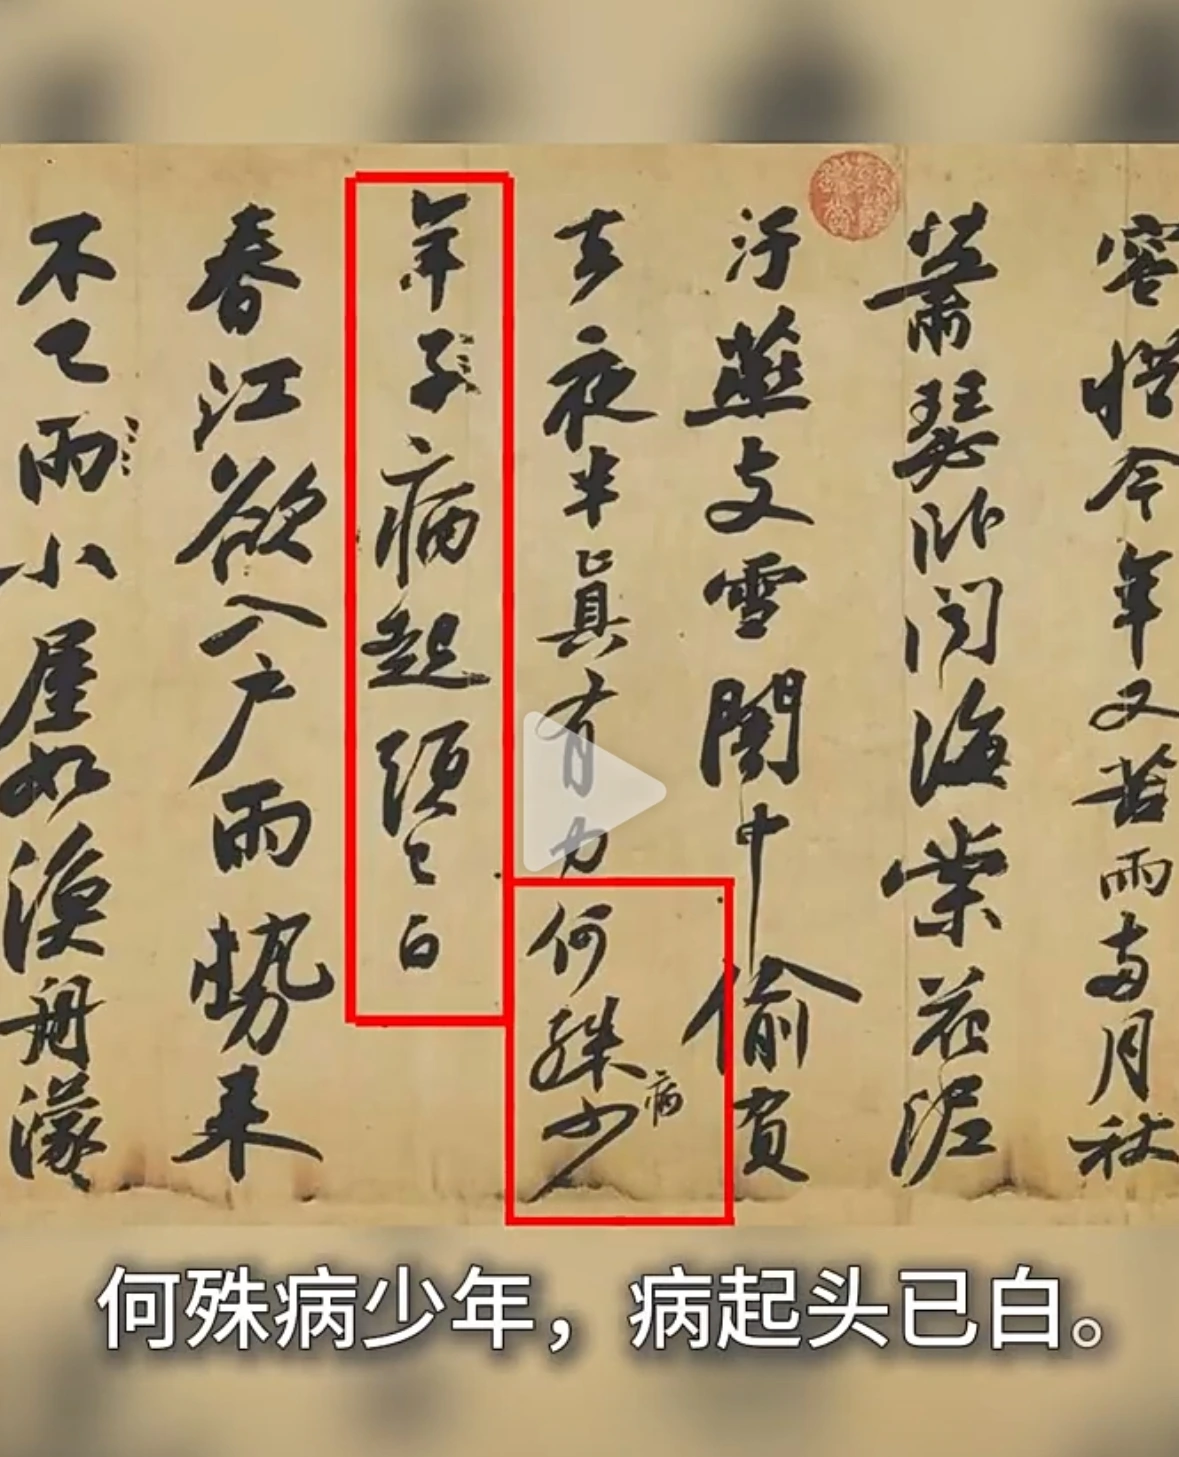 容惜今年又苦雨兩月秋
蕭瑟臥聞海棠花泥
汙燕支雪闇中偷負
去夜半真有力何殊病少
年子病起頭已白
春江欲入戶雨勢來
不已雨小屋如漁舟濛
何殊病少年，病起头已白。